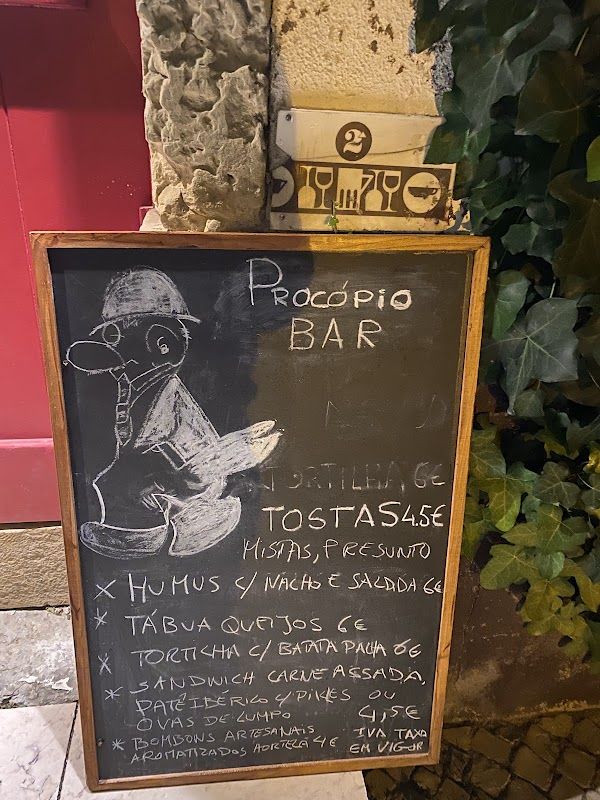 2
PROCÓPIO
BAR
TORTILHA 6€
TOSTAS 4.5€
MISTAS, PRESUNTO
X HUMUS C/ NACHO E SALADA 6€
* TÁBUA QUEIJOS 6€
X TORTICHA C/ BATATA PALHA 6€
* SANDWICH CARNE ASSADA,
PATÊ IBÉRICO C/ PIKLES OU
OVAS DE LUMPO 4,5€
* BOMBONS ARTESANAIS
AROMATIZADOS HORTELÃ 4€
IVA TAXA
EM VIGOR